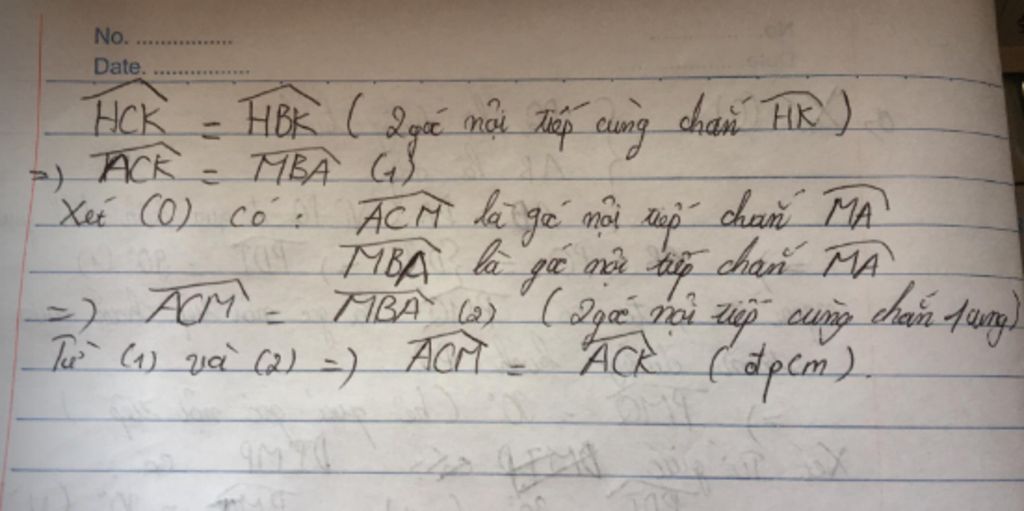 No. ................
Date. ................
HCK = HBK ( 2 góc nội tiếp cùng chắn HK )
=) ACK = MBA (1)
Xét (O) có : ACM là góc nội tiếp chắn MA
MBA là góc nội tiếp chắn MA
=) ACM = MBA (2) ( 2 góc nội tiếp cùng chắn 1 cung)
Từ (1) và (2) =) ACM = ACK (đpcm).